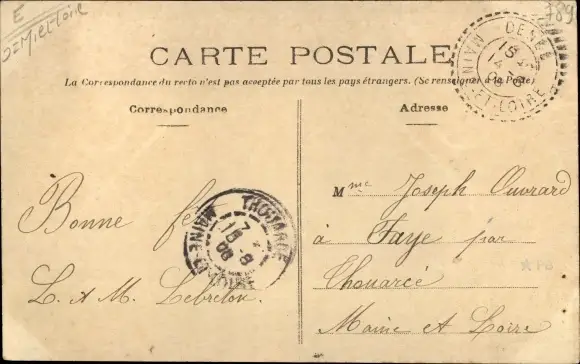 E
S=M-et-Loire
789
CARTE POSTALE
La Correspondance du recto n'est pas acceptée par tous les pays étrangers. (Se renseigner à la Poste)
Correspondance
Adresse
DENÉE
15
14 8
08
MAINE-ET-LOIRE
Mme Joseph Ouvrard
à Faye par
Thouarcé
Maine et Loire
Bonne fê
L. & M. Lebreton.
THOUARCÉ
7
15 - 8
08
MAINE-ET-LOIRE
*PB